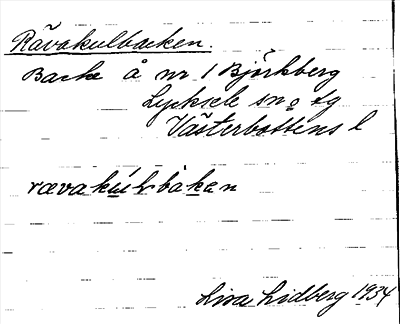 Rävakulbacken.
Backe å nr. 1 Björkberg
Lycksele sn o tg
Västerbottens l
rævakúlbàkan
Lisa Lidberg 1934